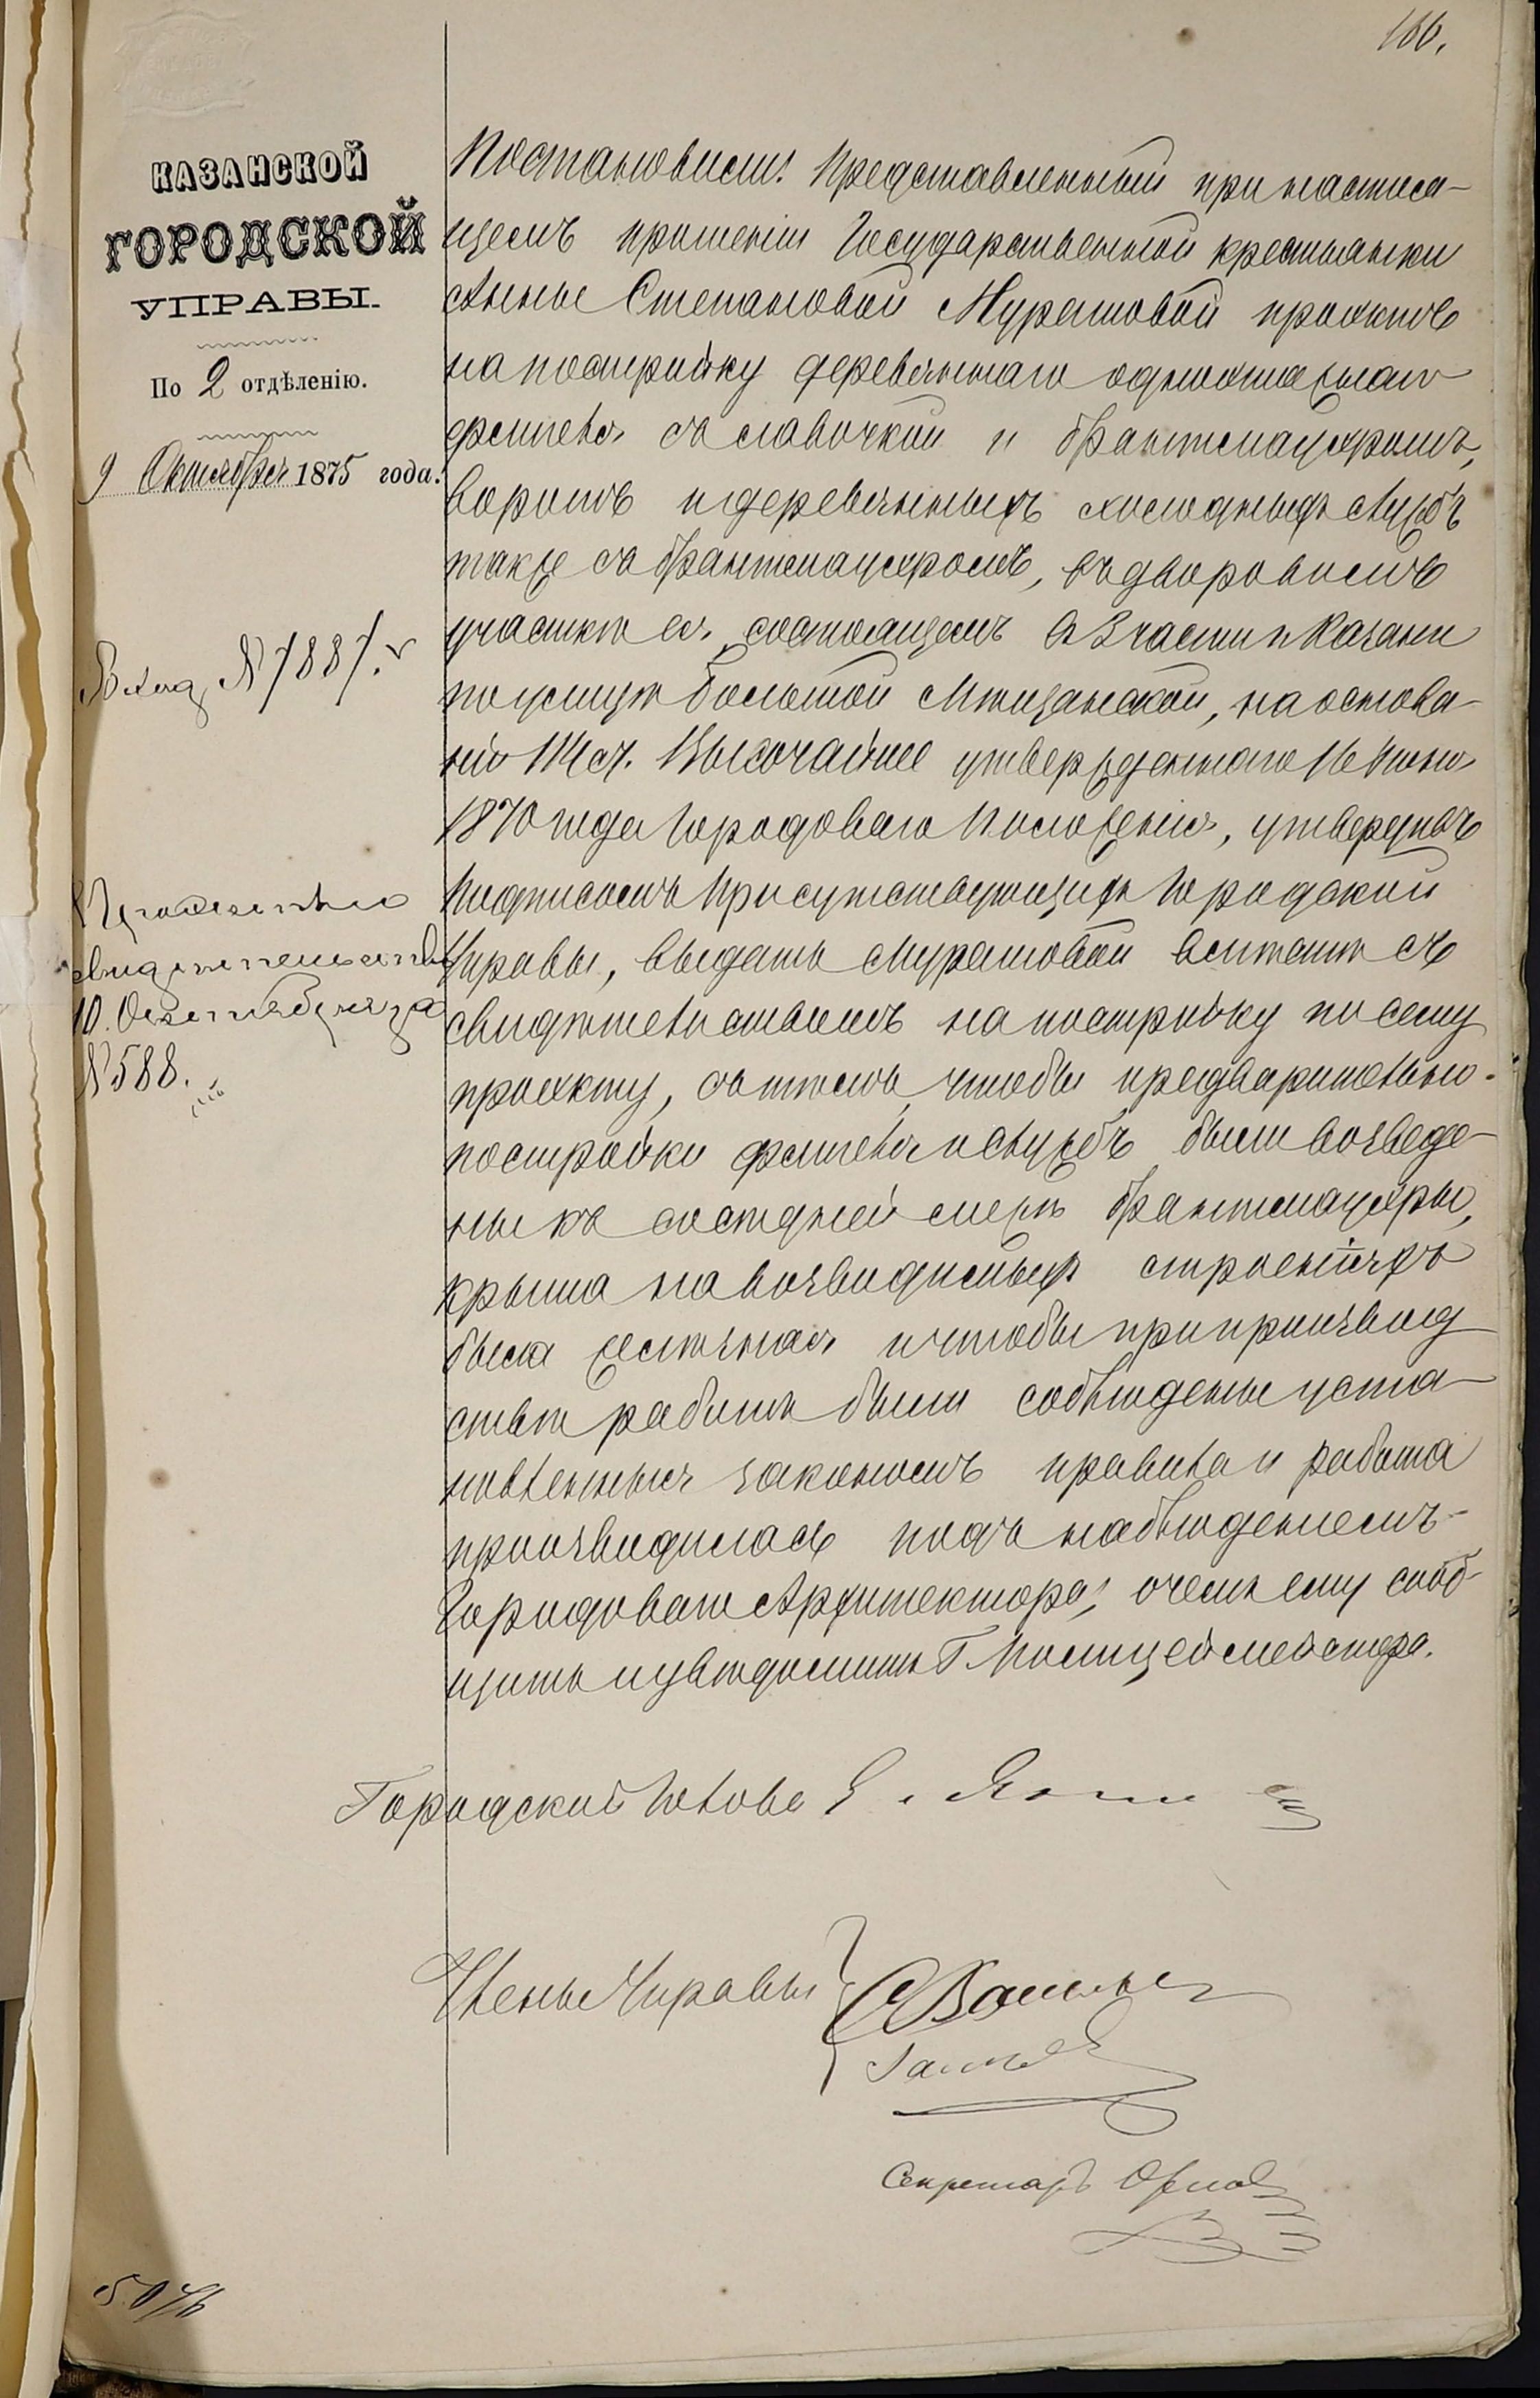 166.
КАЗАНСКОЙ
ГОРОДСКОЙ
УПРАВЫ.
По 2 отдѣленію.
9 Октября 1875 года.
Вход. № 7887.
свидѣтельство
10. Октября за
№ 588.
Постановили: Представленный при настоя-
щемъ прошеніи Государственной крестьянки
Анны Степановой Мурашовой проэктъ
на постройку деревяннаго одноэтажнаго
флигеля съ лавочкой и брантмауэромъ,
воротъ и деревянныхъ холодныхъ службъ
также съ брантмауэромъ, въ дворовомъ
участкѣ ея, состоящемъ въ 3 части г. Казани
по улицѣ Большой Мещанской, на основа-
ніи 114 ст. Высочайше утвержденнаго 16 Іюня
1870 года Городоваго Положенія, утвердивъ
подписомъ Присутствующихъ Городской
Управы, выдать Мурашовой вмѣстѣ съ
свидѣтельствомъ на постройку по сему
проэкту, съ тѣмъ, чтобы предварительно
постройки флигеля и службъ были возведе-
ны къ сосѣдней межѣ брантмауэры,
крыша на возводимыхъ строеніяхъ
была желѣзная и чтобы при производ-
ствѣ работъ были соблюдены уста-
новленныя закономъ правила и работа
производилась подъ наблюденіемъ
Городоваго Архитектора, о чемъ ему сооб-
щить и увѣдомить Г. Полицеймейстера.
Городской Голова
Члены Управы
Секретарь Орлов